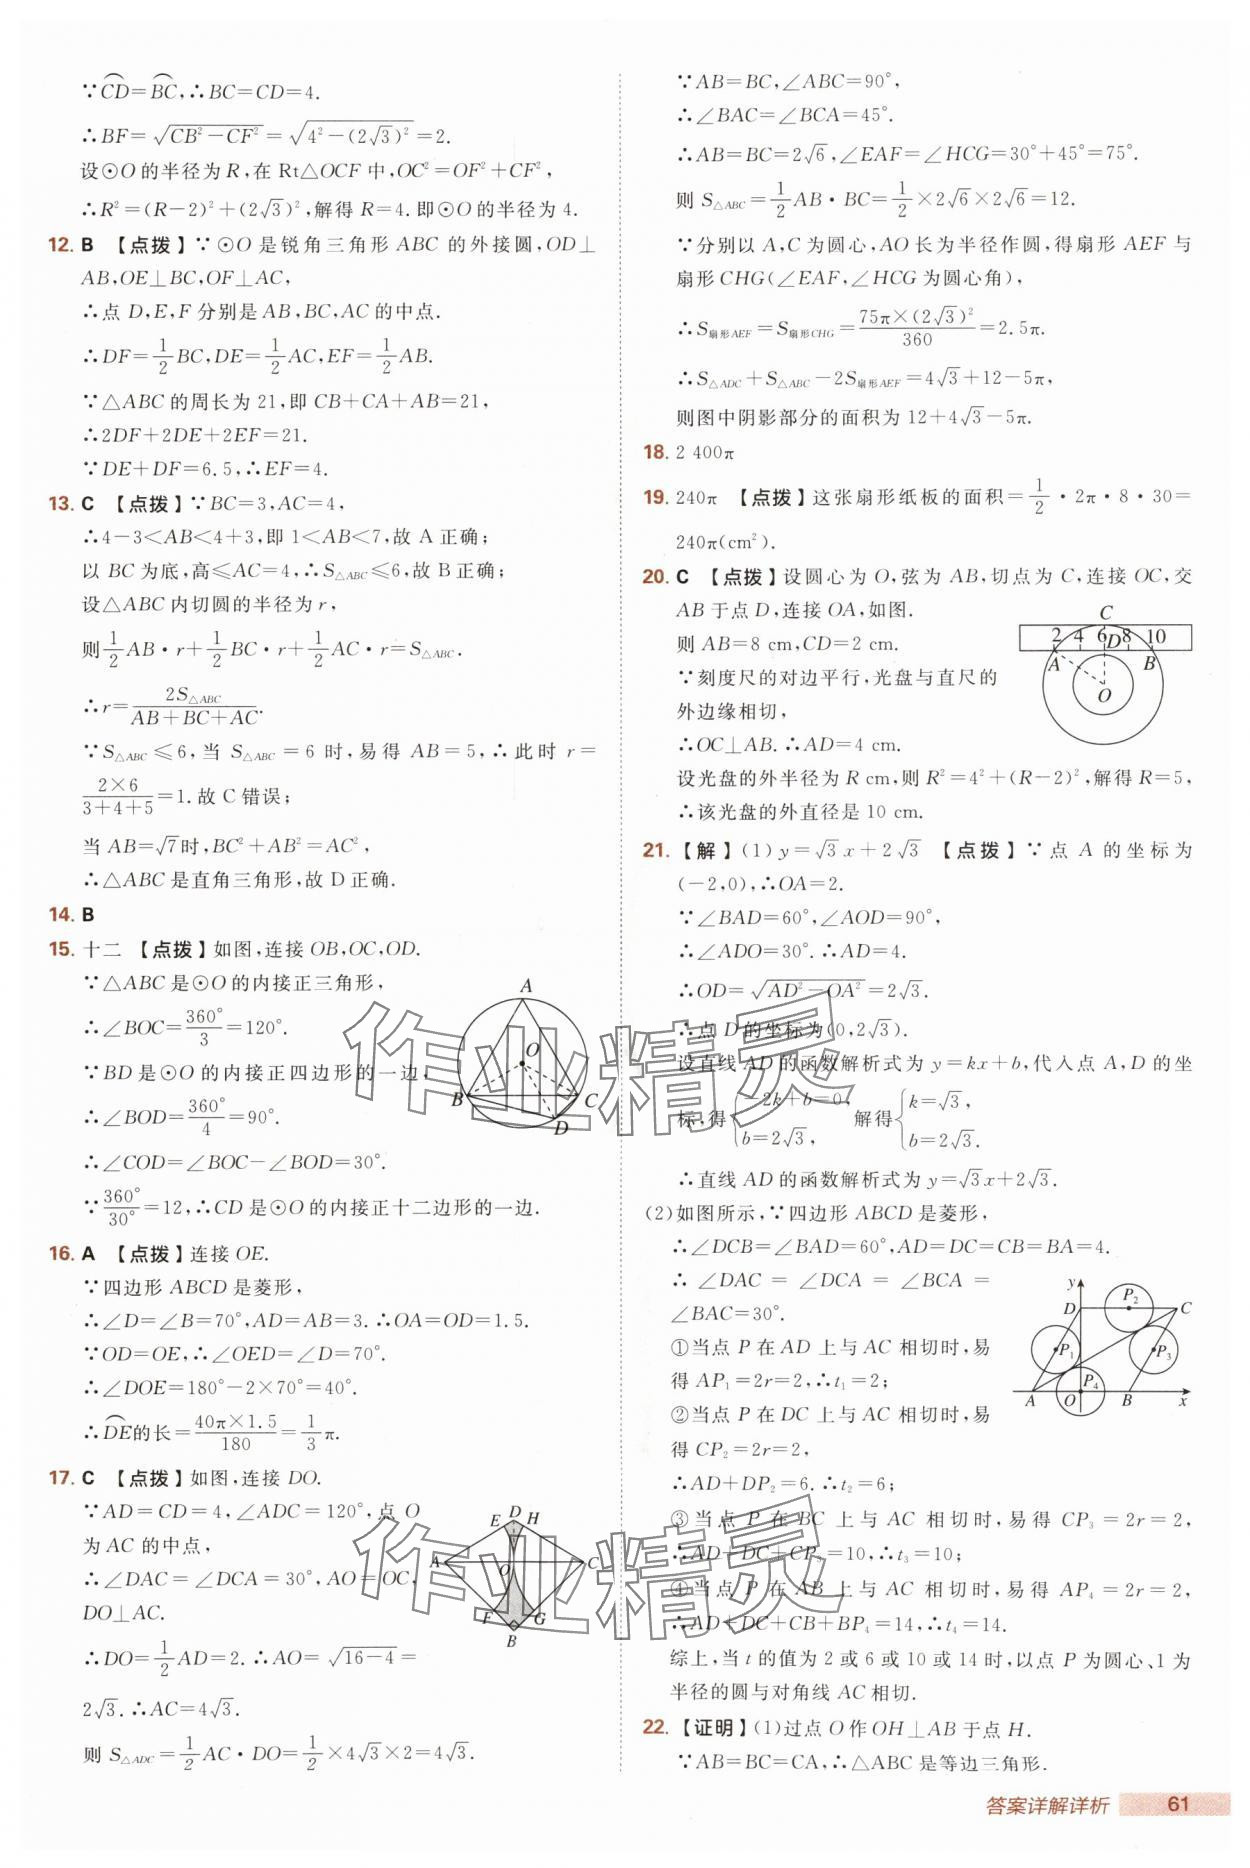 ∵C͡D=B͡C,∴BC=CD=4.
∴BF=√(CB²−CF²)=√(4²−(2√3)²)=2.
设⊙O的半径为R,在Rt△OCF中,OC²=OF²+CF²,
∴R²=(R−2)²+(2√3)²,解得R=4.即⊙O的半径为4.
12. B 【点拨】∵⊙O是锐角三角形ABC的外接圆,OD⊥
AB,OE⊥BC,OF⊥AC,
∴点D,E,F分别是AB,BC,AC的中点.
∴DF=1/2BC,DE=1/2AC,EF=1/2AB.
∵△ABC的周长为21,即CB+CA+AB=21,
∴2DF+2DE+2EF=21.
∵DE+DF=6.5,∴EF=4.
13. C 【点拨】∵BC=3,AC=4,
∴4−3<AB<4+3,即1<AB<7,故A正确;
以BC为底,高≤AC=4,∴S△ABC≤6,故B正确;
设△ABC内切圆的半径为r,
则1/2AB·r+1/2BC·r+1/2AC·r=S△ABC.
∴r=2S△ABC/(AB+BC+AC).
∵S△ABC≤6,当S△ABC=6时,易得AB=5,∴此时r=
(2×6)/(3+4+5)=1.故C错误;
当AB=√7时,BC²+AB²=AC²,
∴△ABC是直角三角形,故D正确.
14. B
15. 十二 【点拨】如图,连接OB,OC,OD.
∵△ABC是⊙O的内接正三角形,
∴∠BOC=360°/3=120°.
∵BD是⊙O的内接正四边形的一边,
∴∠BOD=360°/4=90°.
∴∠COD=∠BOC−∠BOD=30°.
∵360°/30°=12,∴CD是⊙O的内接正十二边形的一边.
A
O
B
C
D
16. A 【点拨】连接OE.
∵四边形ABCD是菱形,
∴∠D=∠B=70°,AD=AB=3.∴OA=OD=1.5.
∵OD=OE,∴∠OED=∠D=70°.
∴∠DOE=180°−2×70°=40°.
∴D͡E的长=(40π×1.5)/180=1/3π.
17. C 【点拨】如图,连接DO.
∵AD=CD=4,∠ADC=120°,点O
为AC的中点,
∴∠DAC=∠DCA=30°,AO=OC,
DO⊥AC.
∴DO=1/2AD=2.∴AO=√(16−4)=
2√3.∴AC=4√3.
则S△ADC=1/2AC·DO=1/2×4√3×2=4√3.
E D H
A
O
C
F
G
B
∵AB=BC,∠ABC=90°,
∴∠BAC=∠BCA=45°.
∴AB=BC=2√6,∠EAF=∠HCG=30°+45°=75°.
则S△ABC=1/2AB·BC=1/2×2√6×2√6=12.
∵分别以A,C为圆心,AO长为半径作圆,得扇形AEF与
扇形CHG(∠EAF,∠HCG为圆心角),
∴S扇形AEF=S扇形CHG=(75π×(2√3)²)/360=2.5π.
∴S△ADC+S△ABC−2S扇形AEF=4√3+12−5π,
则图中阴影部分的面积为12+4√3−5π.
18. 2 400π
19. 240π 【点拨】这张扇形纸板的面积=1/2·2π·8·30=
240π(cm²).
20. C 【点拨】设圆心为O,弦为AB,切点为C,连接OC,交
AB于点D,连接OA,如图.
则AB=8 cm,CD=2 cm.
∵刻度尺的对边平行,光盘与直尺的
外边缘相切,
∴OC⊥AB.∴AD=4 cm.
设光盘的外半径为R cm,则R²=4²+(R−2)²,解得R=5,
∴该光盘的外直径是10 cm.
C
2 4 6 D 8 10
A
B
O
21. 【解】(1)y=√3x+2√3 【点拨】∵点A的坐标为
(−2,0),∴OA=2.
∵∠BAD=60°,∠AOD=90°,
∴∠ADO=30°.∴AD=4.
∴OD=√(AD²−OA²)=2√3.
∴点D的坐标为(0,2√3).
设直线AD的函数解析式为y=kx+b,代入点A,D的坐
标,得{−2k+b=0, b=2√3, 解得{k=√3, b=2√3.
∴直线AD的函数解析式为y=√3x+2√3.
(2)如图所示,∵四边形ABCD是菱形,
∴∠DCB=∠BAD=60°,AD=DC=CB=BA=4.
∴∠DAC=∠DCA=∠BCA=
∠BAC=30°.
①当点P在AD上与AC相切时,易
得AP₁=2r=2,∴t₁=2;
②当点P在DC上与AC相切时,易
得CP₂=2r=2,
∴AD+DP₂=6.∴t₂=6;
③当点P在BC上与AC相切时,易得CP₃=2r=2,
∴AD+DC+CP₃=10,∴t₃=10;
④当点P在AB上与AC相切时,易得AP₄=2r=2,
∴AD+DC+CB+BP₄=14,∴t₄=14.
综上,当t的值为2或6或10或14时,以点P为圆心、1为
半径的圆与对角线AC相切.
y
P₂
D
C
P₁
P₃
P₄
A O B x
22. 【证明】(1)过点O作OH⊥AB于点H.
∵AB=BC=CA,∴△ABC是等边三角形.
作业精灵
作业精灵
答案详解详析 61